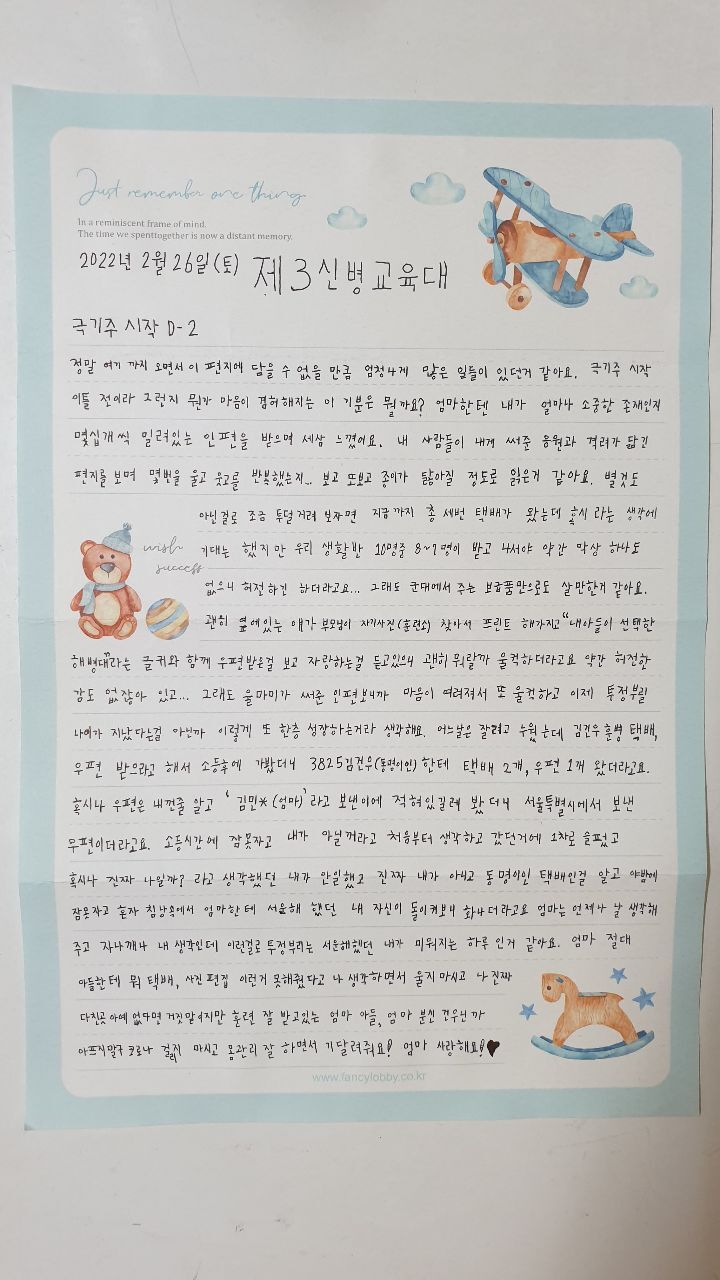 Just remember one thing
In a reminiscent frame of mind.
The time we spenttogether is now a distant memory.
2022년 2월 26일(토) 제3신병교육대
극기주 시작 D-2
정말 여기 까지 오면서 이 편지에 담을 수 없을 만큼 엄청나게 많은 일들이 있던거 같아요. 극기주 시작
이틀 전이라 그런지 뭔가 마음이 겸허해지는 이 기분은 뭘까요? 엄마한텐 내가 얼마나 소중한 존재인지
몇십개씩 밀려있는 인편을 받으며 세삼 느꼈어요. 내 사람들이 내게 써준 응원과 격려가 담긴
편지를 보며 몇번을 울고 웃고를 반복했는지... 보고 또보고 종이가 닳아질 정도로 읽은거 같아요. 별것도
아닌걸로 조금 투덜거려 보자면 지금까지 총 세번 택배가 왔는데 혹시 라는 생각에
기대는 했지만 우리 생활반 10명중 8~7명이 받고 나서야 약간 막상 하나도
wish
success
없으니 허전하긴 하더라고요... 그래도 군대에서 주는 보급품만으로도 살만한거 같아요.
괜히 옆에있는 얘가 부모님이 자기사진(훈련소) 찾아서 프린트 해가지고 "내아들이 선택한
해병대"라는 글귀와 함께 우편받은걸 보고 자랑하는걸 듣고있으니 괜히 뭐랄까 울컥하더라고요 약간 허전한
감도 없잖아 있고... 그래도 울마미가 써준 인편보니까 마음이 여려져서 또 울컥하고 이제 투정부릴
나이가 지났다는걸 아닌까 이렇게 또 한층 성장하는거라 생각해요. 어느날은 잘려고 누웠는데 김건우 훈병 택배,
우편 받으라고 해서 소등후에 가봤더니 3825김건우(동명이인)한테 택배 2개, 우편 1개 왔더라고요.
혹시나 우편은 내껀줄 알고 '김민*(엄마)'라고 보낸이에 적혀있길레 봤더니 서울특별시에서 보낸
우편이더라고요. 소등시간에 잠못자고 내가 아닐꺼라고 처음부터 생각하고 갔던거에 1차로 슬펐고
혹시나 진짜 나일까? 라고 생각했던 내가 안일했고 진짜 내가 아니고 동명이인 택배인걸 알고 야밤에
잠못자고 혼자 침낭속에서 엄마한테 서운해 했던 내 자신이 돌이켜보니 화나더라고요 엄마는 언제나 날 생각해
주고 자나깨나 내 생각인데 이런걸로 투정부리는 서운해했던 내가 미워지는 하루 인거 같아요. 엄마 절대
아들한테 뭐 택배, 사진 편집 이런거 못해줬다고 나 생각하면서 울지 마시고 나 진짜
다친곳 아예 없다면 거짓말이지만 훈련 잘 받고있는 엄마 아들, 엄마 분신 건우닌까
아프지말구 코로나 걸리지 마시고 몸관리 잘 하면서 기달려줘요! 엄마 사랑해요!♥
www.fancylobby.co.kr